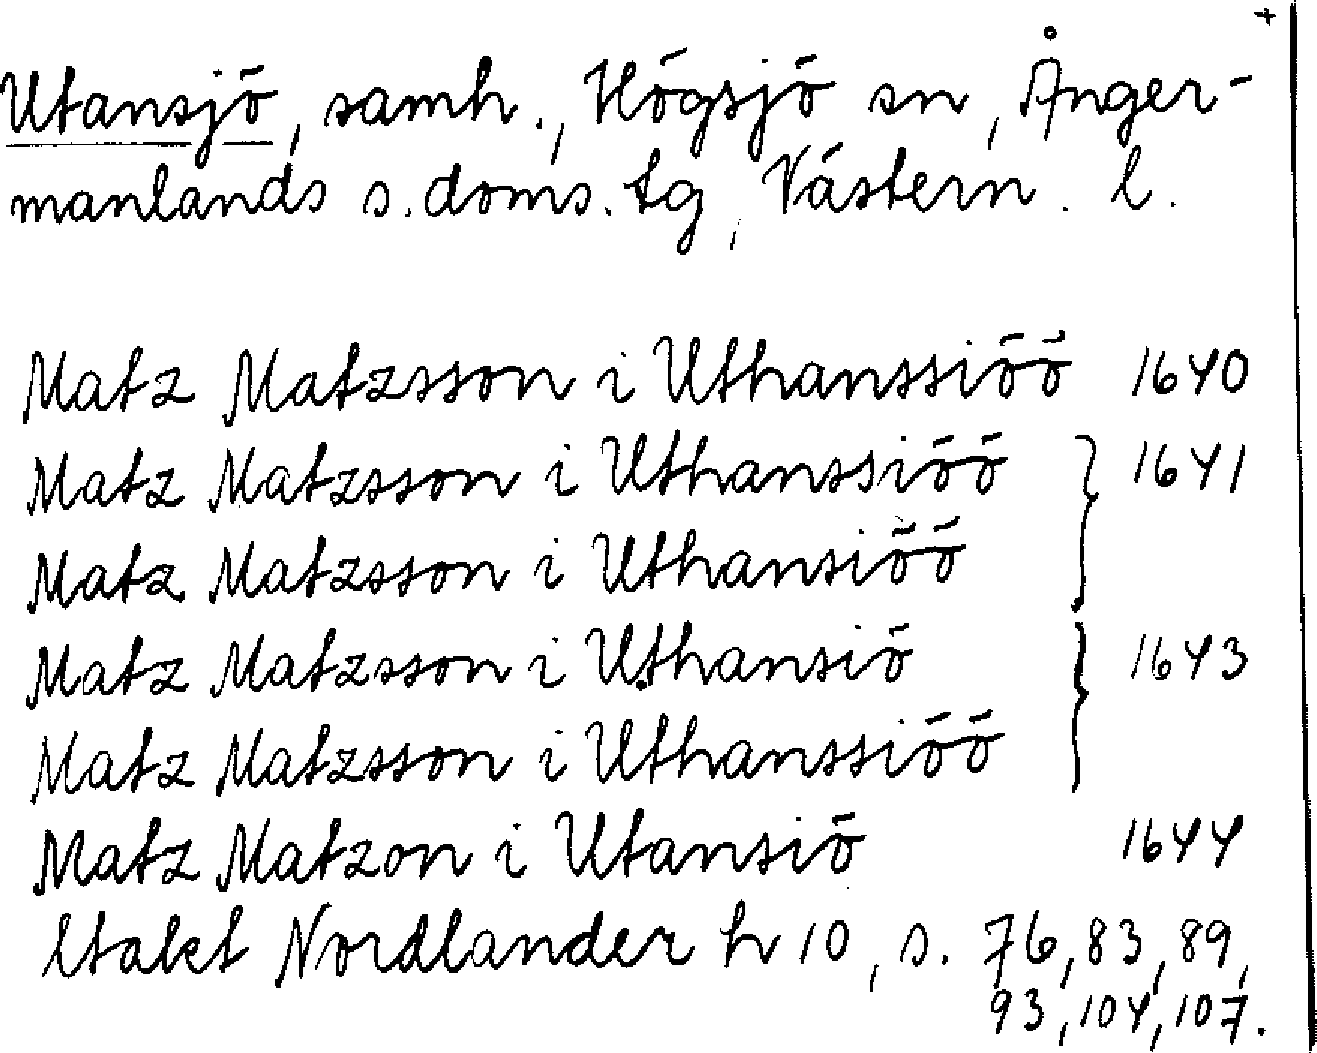 +
Utansjö, samh., Högsjö sn, Ånger-
manlands s. doms. tg, Västern. l.
Matz Matzsson i Uthanssiöö 1640
Matz Matzsson i Uthanssiöö } 1641
Matz Matzsson i Uthansiöö
Matz Matzsson i Uthansiö } 1643
Matz Matzsson i Uthanssiöö
Matz Matzon i Utansiö 1644
Nordlander h 10, s. 76, 83, 89,
93, 104, 107.